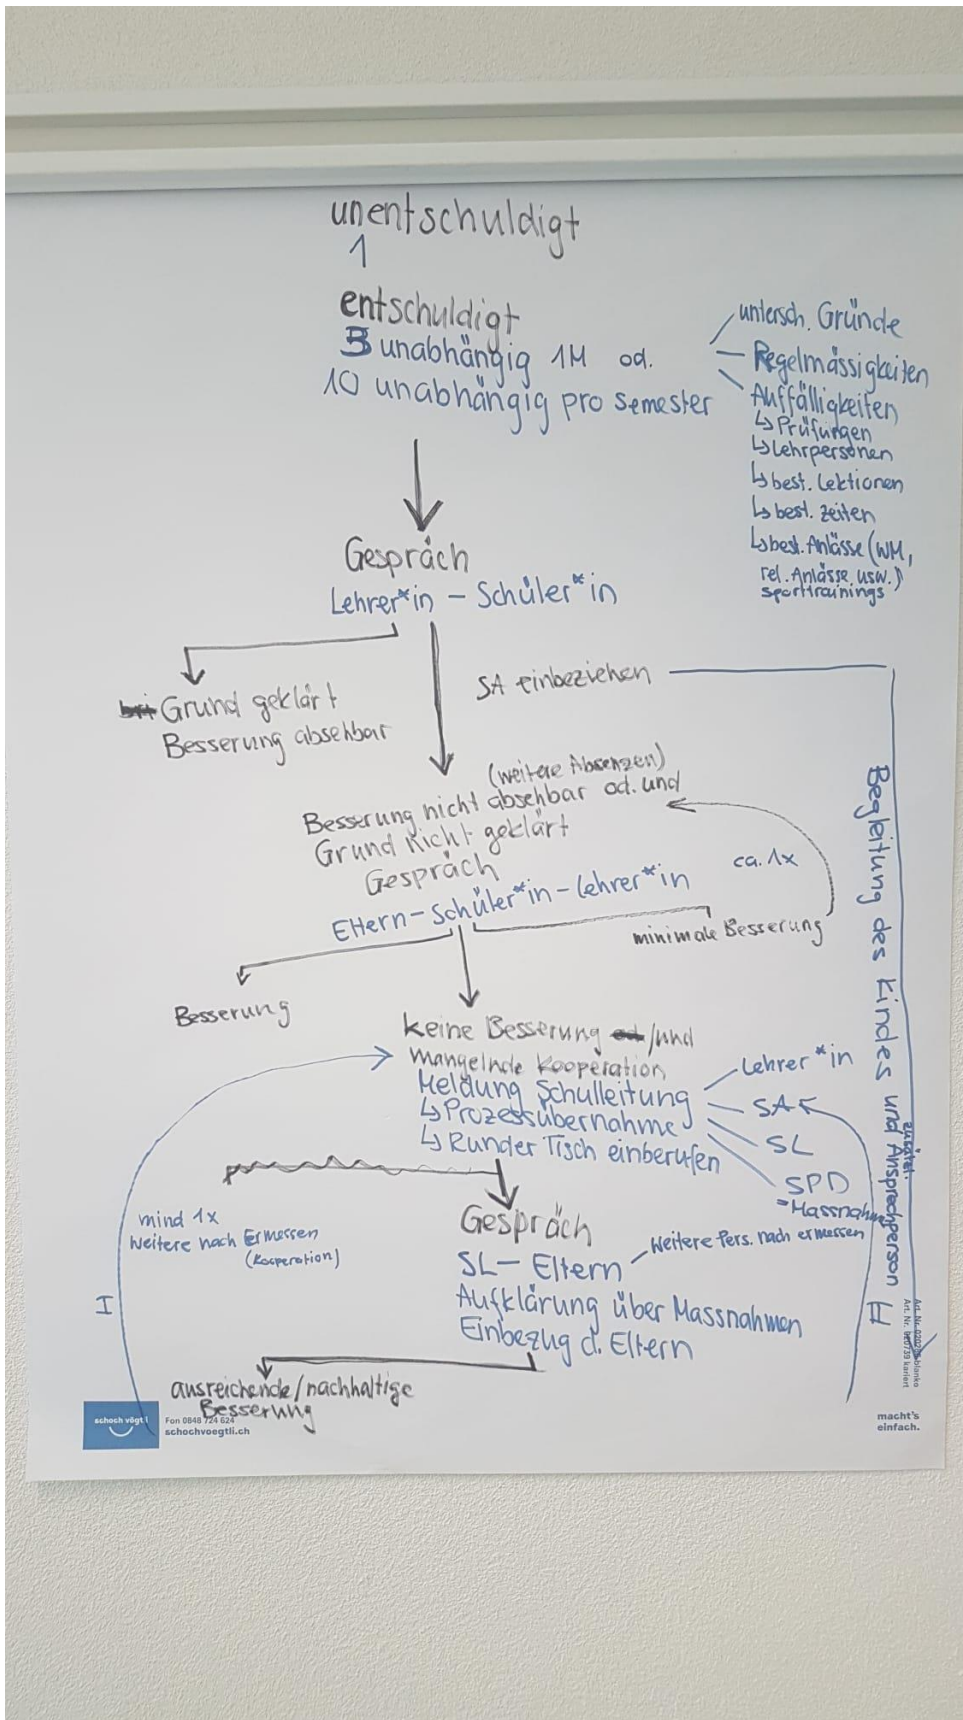 unentschuldigt
1
entschuldigt
3 unabhängig 1M od.
10 unabhängig pro semester
untersch. Gründe
Regelmässigkeiten
Auffälligkeiten
↳ Prüfungen
↳ Lehrpersonen
↳ best. Lektionen
↳ best. Zeiten
↳ best. Anlässe (WM,
rel. Anlässe usw.)
sporttrainings
Gespräch
Lehrer*in – Schüler*in
SA einbeziehen
Grund geklärt
Besserung absehbar
(weitere Absenzen)
Besserung nicht absehbar od. und
Grund nicht geklärt
Gespräch
Eltern – Schüler*in – Lehrer*in
ca. 1x
minimale Besserung
Besserung
Begleitung des Kindes und Ansprechperson
keine Besserung /und
mangelnde Kooperation
Meldung Schulleitung
↳ Prozessübernahme
↳ Runder Tisch einberufen
Lehrer*in
SA
SL
SPD
=Massnahm
mind 1x
Weitere nach Ermessen
(Kooperation)
I
II
Gespräch
SL – Eltern
Weitere Pers. nach ermessen
Aufklärung über Massnahmen
Einbezug d. Eltern
ausreichende/nachhaltige
Besserung
schoch vögtli
Fon 0848 724 624
schochvoegtli.ch
macht's
einfach.